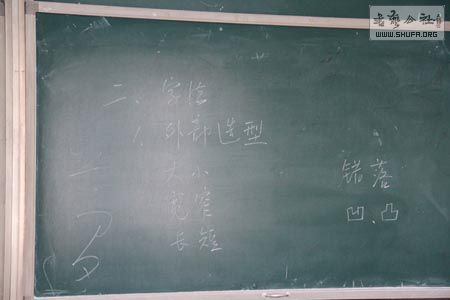 书艺公社
WWW.SHUFA.ORG
二、字法
1. 外部造型
大小
宽窄
长短
错落
凹、凸